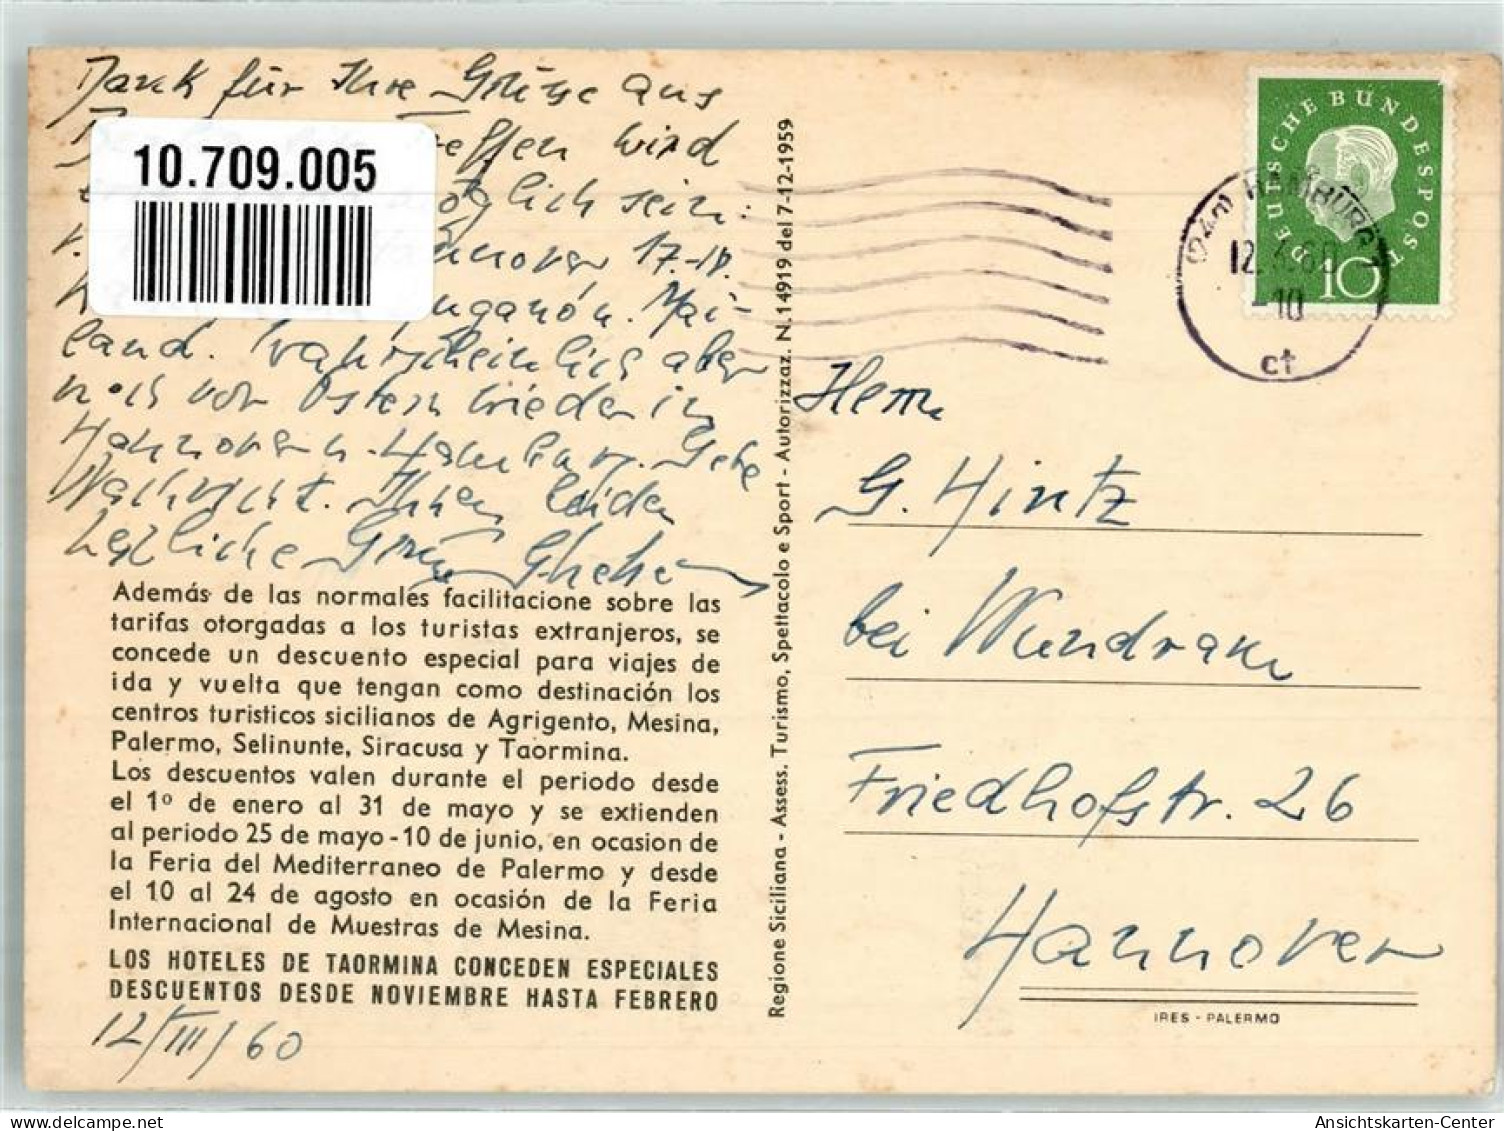 Dank für Ihre Grüsse aus
Treffen wird
möglich sein
Hannover 17.-18.
Lugano n. Mai-
land. Wahrscheinlich aber
noch vor Ostern wieder in
Hannover n. Hamburg. Gebe
Nachricht. Ihnen beiden
herzliche Grüsse
10.709.005
Además de las normales facilitacione sobre las
tarifas otorgadas a los turistas extranjeros, se
concede un descuento especial para viajes de
ida y vuelta que tengan como destinación los
centros turisticos sicilianos de Agrigento, Mesina,
Palermo, Selinunte, Siracusa y Taormina.
Los descuentos valen durante el periodo desde
el 1º de enero al 31 de mayo y se extienden
al periodo 25 de mayo - 10 de junio, en ocasion de
la Feria del Mediterraneo de Palermo y desde
el 10 al 24 de agosto en ocasión de la Feria
Internacional de Muestras de Mesina.
LOS HOTELES DE TAORMINA CONCEDEN ESPECIALES
DESCUENTOS DESDE NOVIEMBRE HASTA FEBRERO
12/III/60
Regione Siciliana - Assess. Turismo, Spettacolo e Sport - Autorizzaz. N. 14919 del 7-12-1959
DEUTSCHE BUNDESPOST
10
(24a) HAMBURG
-10
ct
Herrn
G. Hintz
bei Wundram
Friedhofstr. 26
Hannover
IRES - PALERMO
oldthing.de
Ansichtskarten-Center